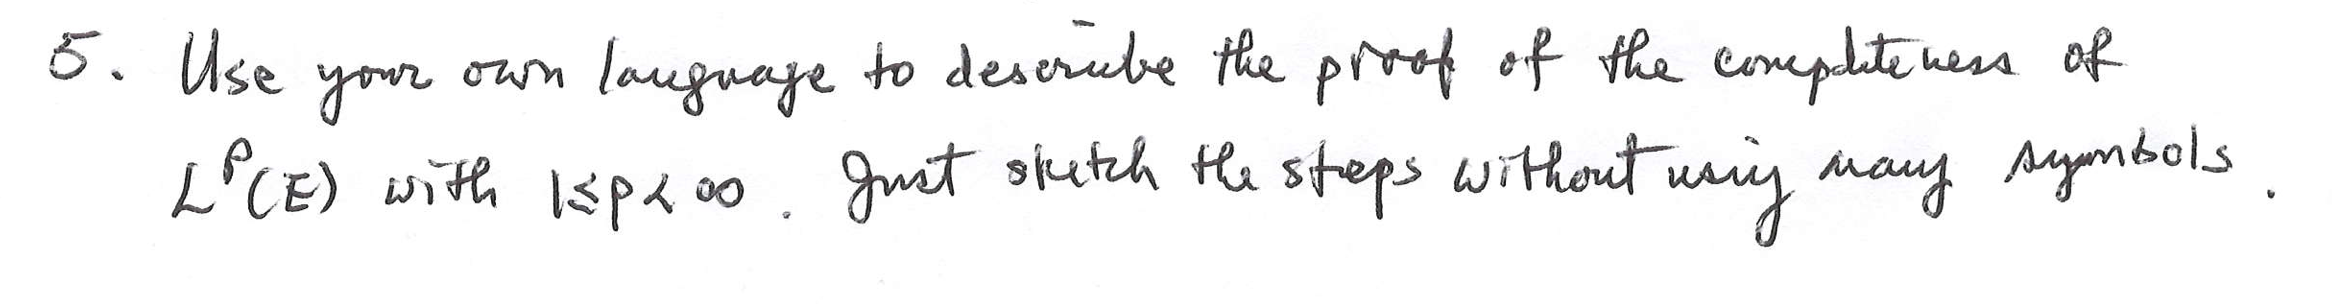 5. Use your own language to describe the proof of the completeness of
L^p(E) with 1≤p<∞. Just sketch the steps without using many symbols.